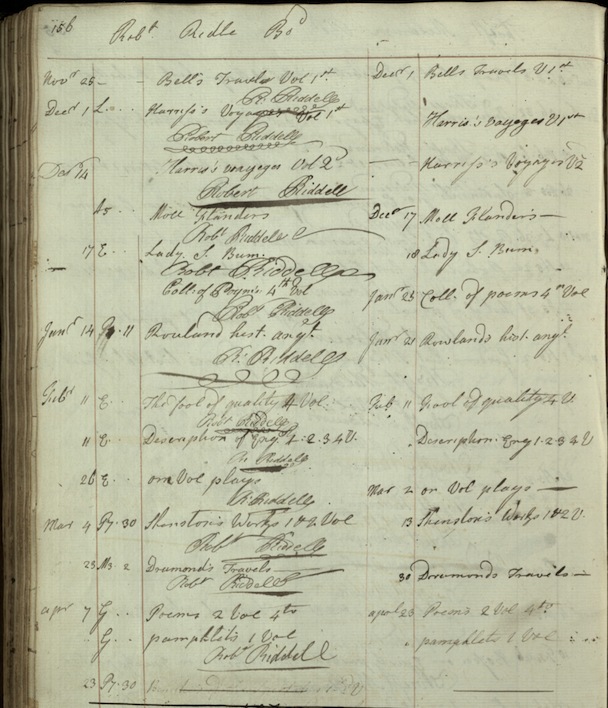 156 Robt Riddle Bd
Novr 25 - Bell's Travels Vol 1st Decr 1 Bells Travels V 1st
R. Riddell
Decr 1 L Harriss's Voyages Vol 1st Harris's voyages V 1st
Robert Riddell
Decr 14 Harris's voyages Vol 2d Harriss's Voyages V 2
Robert Riddell
Moll Flanders Decr 17 Moll Flanders
Robt Riddell
17 E Lady S. Bum. 18 Lady S. Bum.
Robt Riddell
Coll: of Poyms 4th Vol Janr 23 Coll. of poems 4th Vol
Robt Riddell
Janr 14 11 Rowland hist. angl. Janr 21 Rowlands hist. angl.
R. Riddell
Febr 11 E The fool of quality 4 Vol. Feb 11 Fool of quality 4 V.
Robt Riddell
11 E Description of Engd 1. 2. 3 4 V. Description Eng 1. 2. 3 4 V
R. Riddell
26 E one Vol plays Mar 2 on Vol plays
R Riddell
Mar 4 P7. 30 Shenston's Works 1 & 2 Vol 13 Shenston's Works 1 & 2 V.
Robt Riddell
23 M3. 2 Drumond's Travels 30 Drumonds Travils
Robt Riddell
apr 7 G Poems 2 Vol 4to apr 23 Poems 2 Vol 4to
G pamphlets 1 Vol pamphlets 1 Vol
Robt Riddell
23 P7. 30